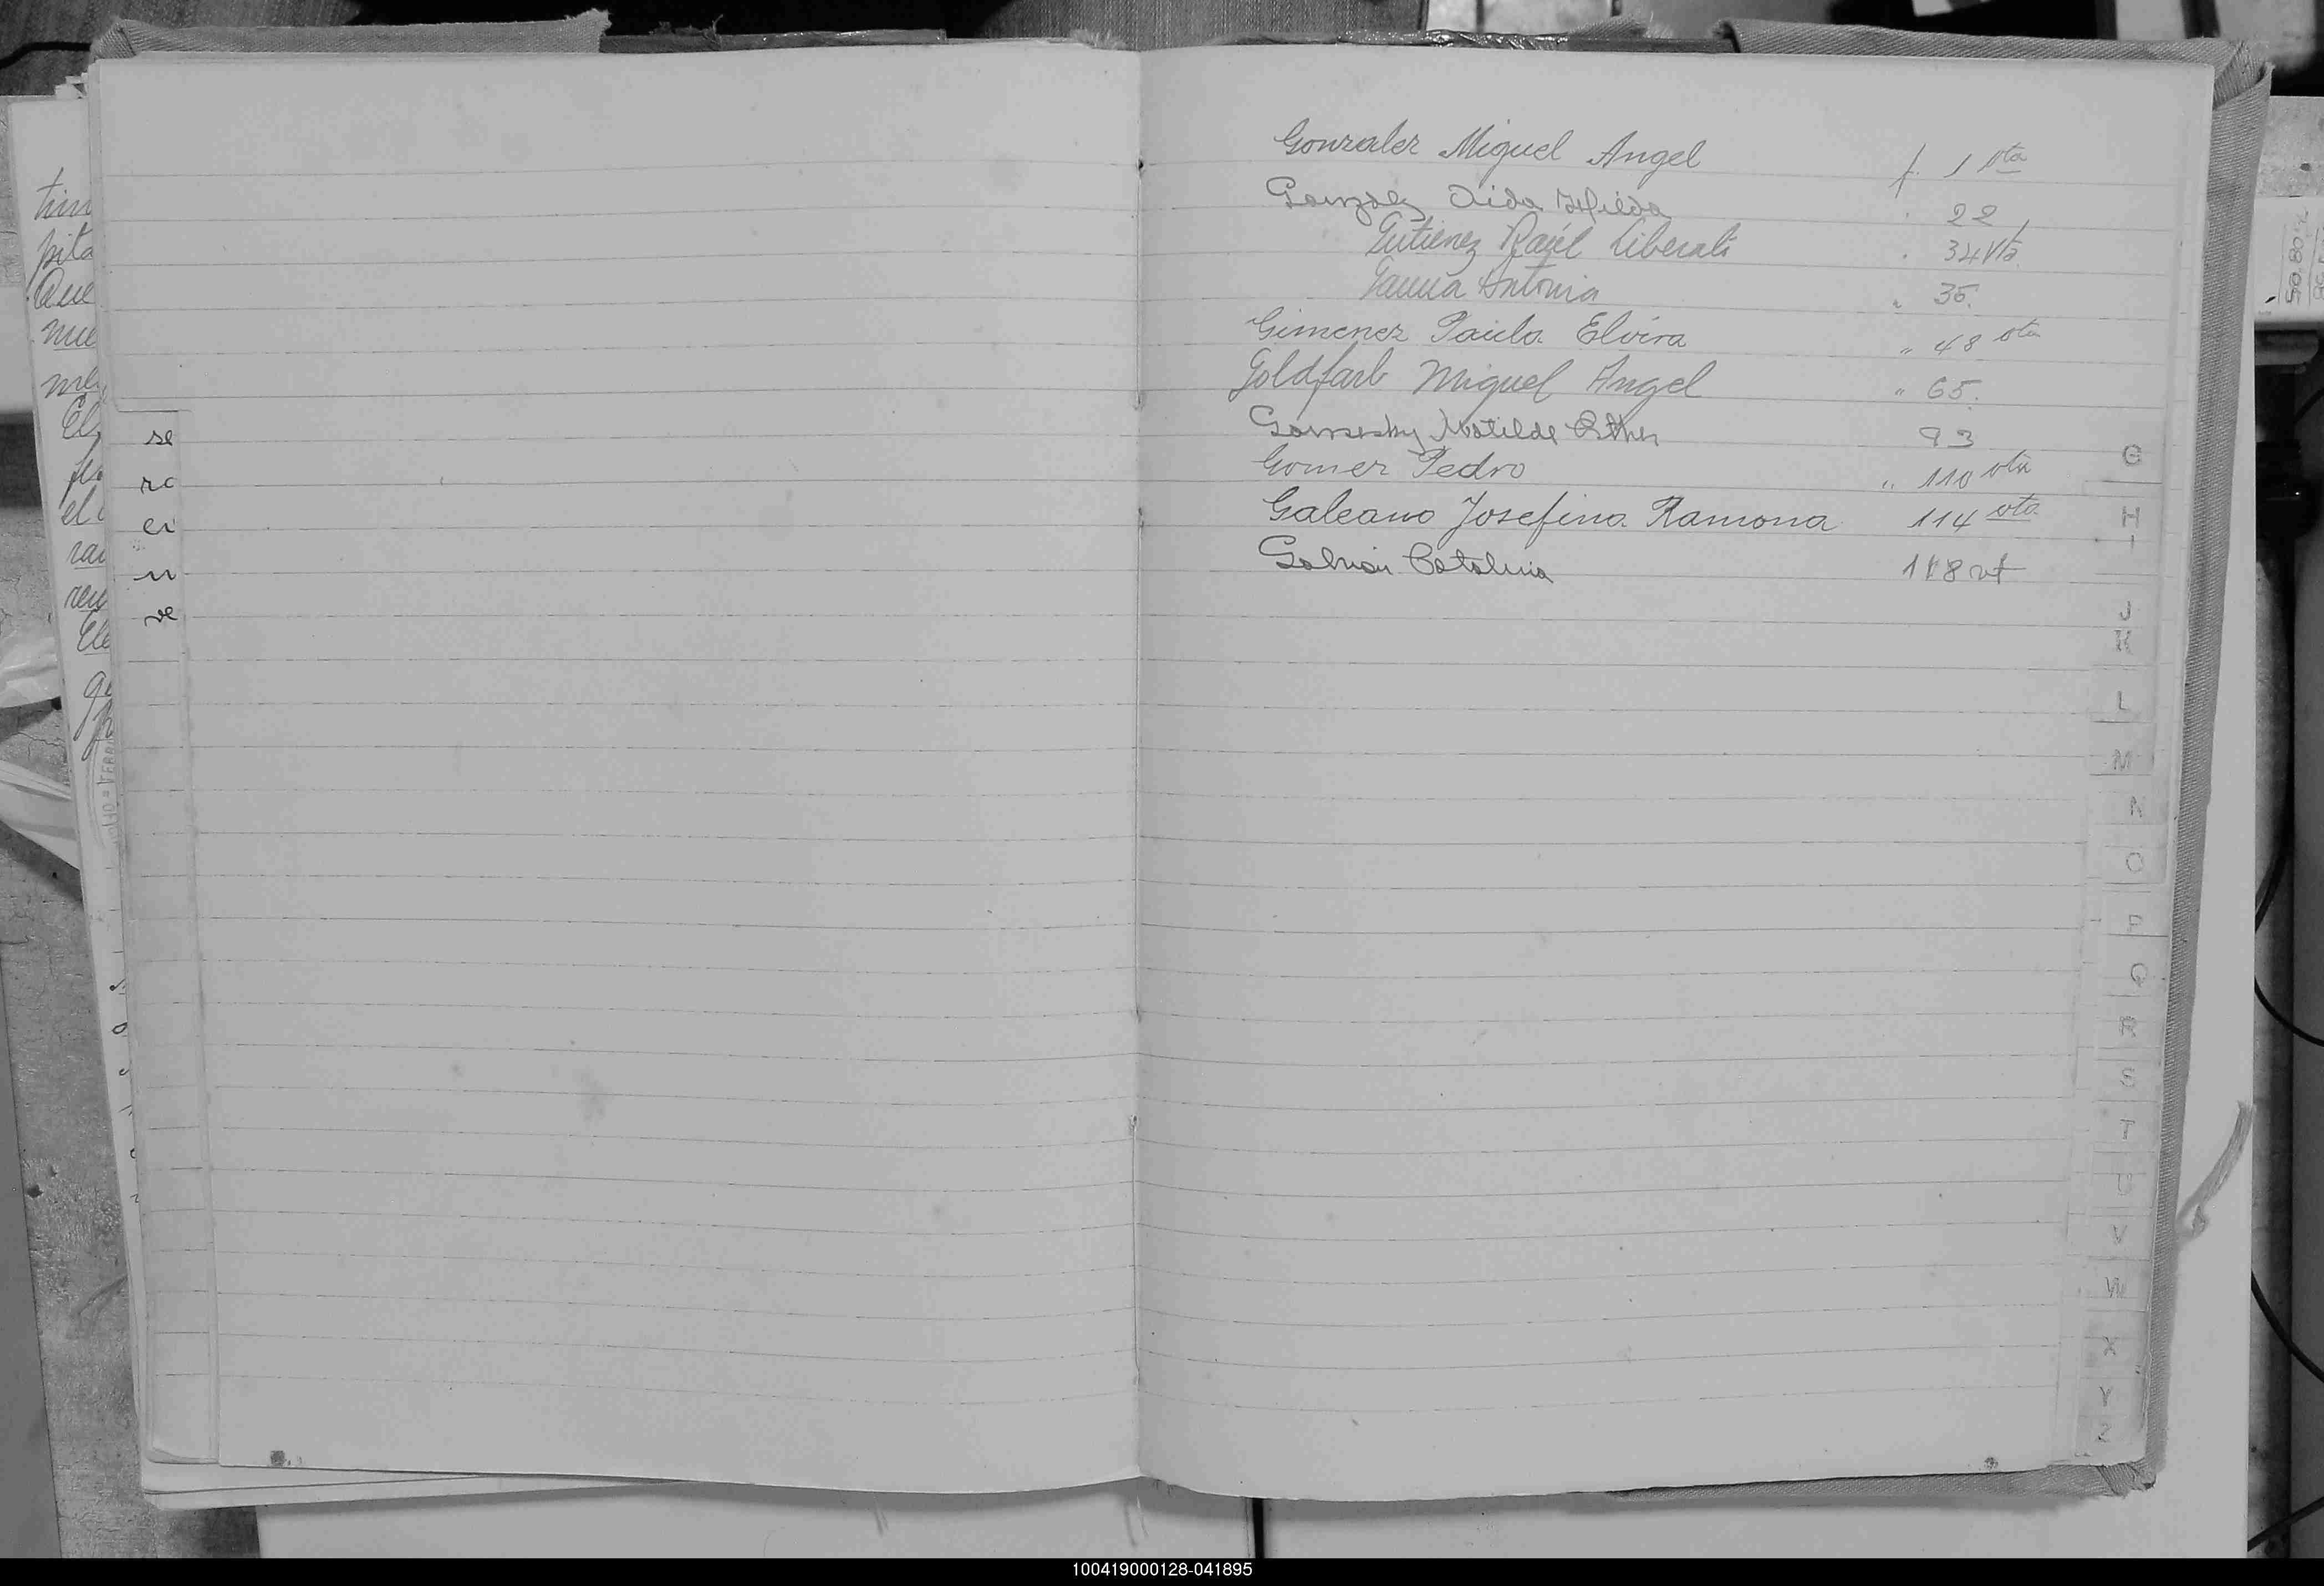 Gonzalez Miguel Angel f. 1 vta
Gonzalez Aida Hilda 22
Gutierrez Raúl Liberato " 34 Vta.
Antonia " 35.
Gimenez Paula Elvira " 48 vta
Goldfarb Miguel Angel " 65.
Matilde Esther 93
Gomez Pedro " 110 vta
Galeano Josefina Ramona 114 vta
Galván Catalina 118 vt
se
ro
er
n
ve
G
H
I
J
K
L
M
N
O
P
Q
R
S
T
U
V
W
X
Y
Z
100419000128-041895